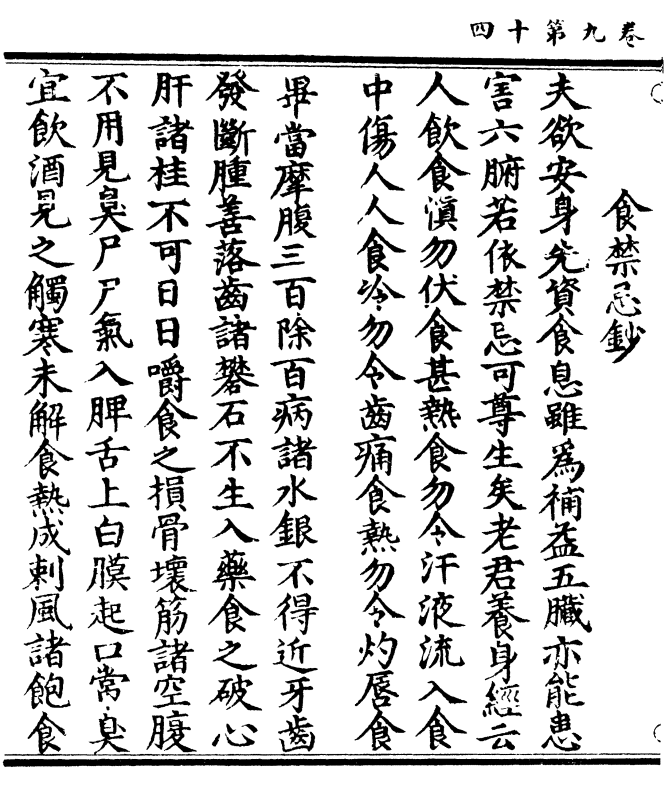 卷九第十四
食禁忌鈔
夫欲安身先資食息雖爲補益五臟亦能患
害六腑若依禁忌可尊生矣老君養身經云
人飲食滇勿伏食甚熱食勿令汗液流入食
中傷人人食冷勿令齒痛食熱勿令灼唇食
畢當摩腹三百除百病諸水銀不得近牙齒
發斷腫善落齒諸礬石不生入藥食之破心
肝諸桂不可日日嚼食之損骨壞筋諸空腹
不用見臭尸尸氣入脾舌上白膜起口常臭
宜飲酒見之觸寒未解食熱成刺風諸飽食